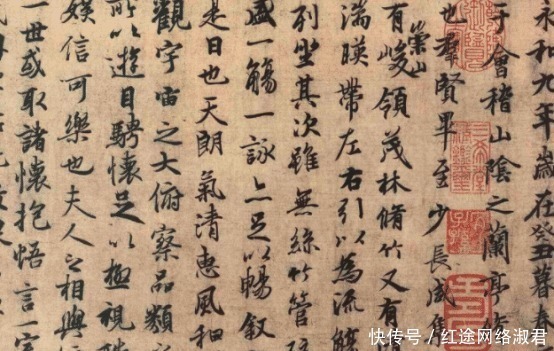 永和九年歲在癸丑暮春
于會稽山陰之蘭亭
也羣賢畢至少長咸
有崇山峻領茂林脩竹又有
湍暎帶左右引以為流觴
列坐其次雖無絲竹管
盛一觴一詠亦足以暢敘
是日也天朗氣清惠風和
觀宇宙之大俯察品類
所以遊目騁懷足以極視聽
娛信可樂也夫人之相與
一世或取諸懷抱悟言一室
快传号／红途网络淑君